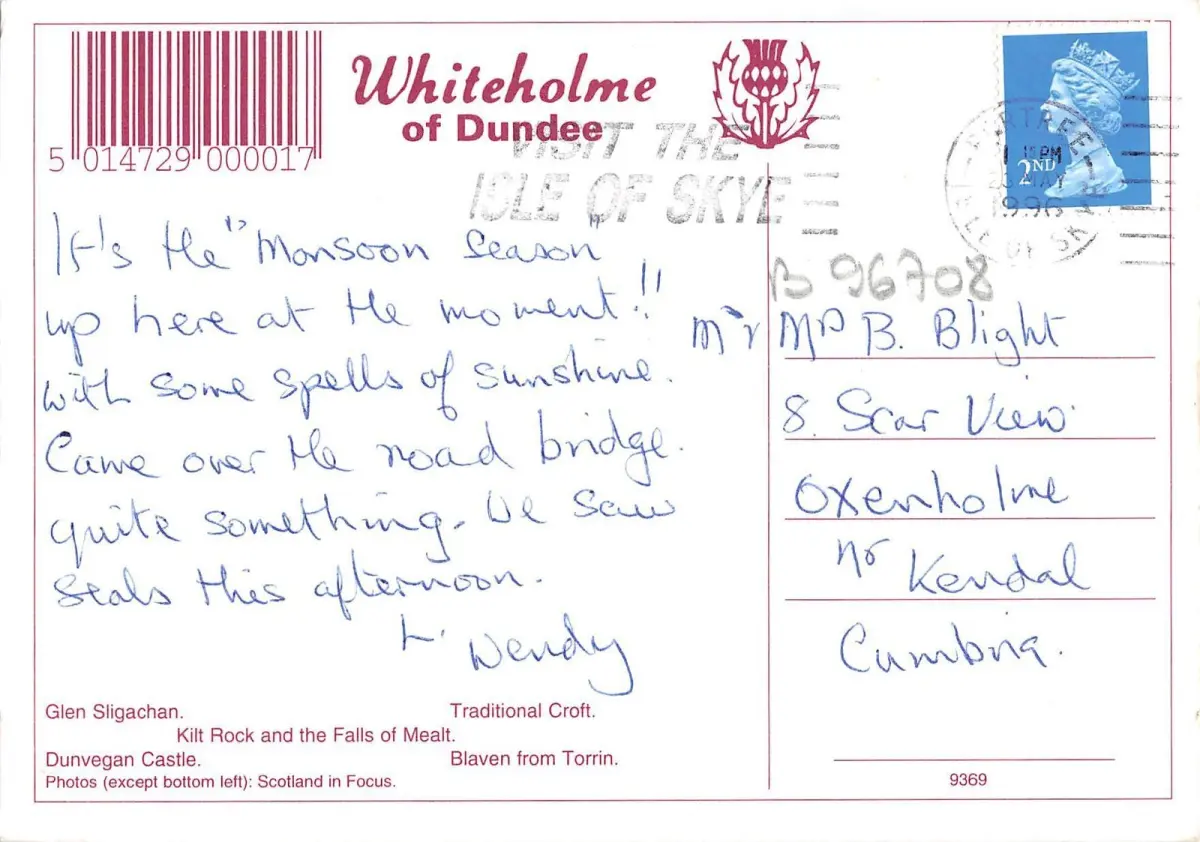 Whiteholme
of Dundee
5 014729 000017
VISIT THE
ISLE OF SKYE
PORTREE
15 PM
MAY
1996
ISLE OF SKYE
2ND
B 96708
It's the "Monsoon Season"
up here at the moment!!
with some spells of sunshine.
Came over the road bridge.
quite something. We saw
seals this afternoon.
L. Wendy
Mr Mrs B. Blight
8. Scar View
Oxenholme
nr Kendal
Cumbria.
Glen Sligachan. Traditional Croft.
Kilt Rock and the Falls of Mealt.
Dunvegan Castle. Blaven from Torrin.
Photos (except bottom left): Scotland in Focus.
9369